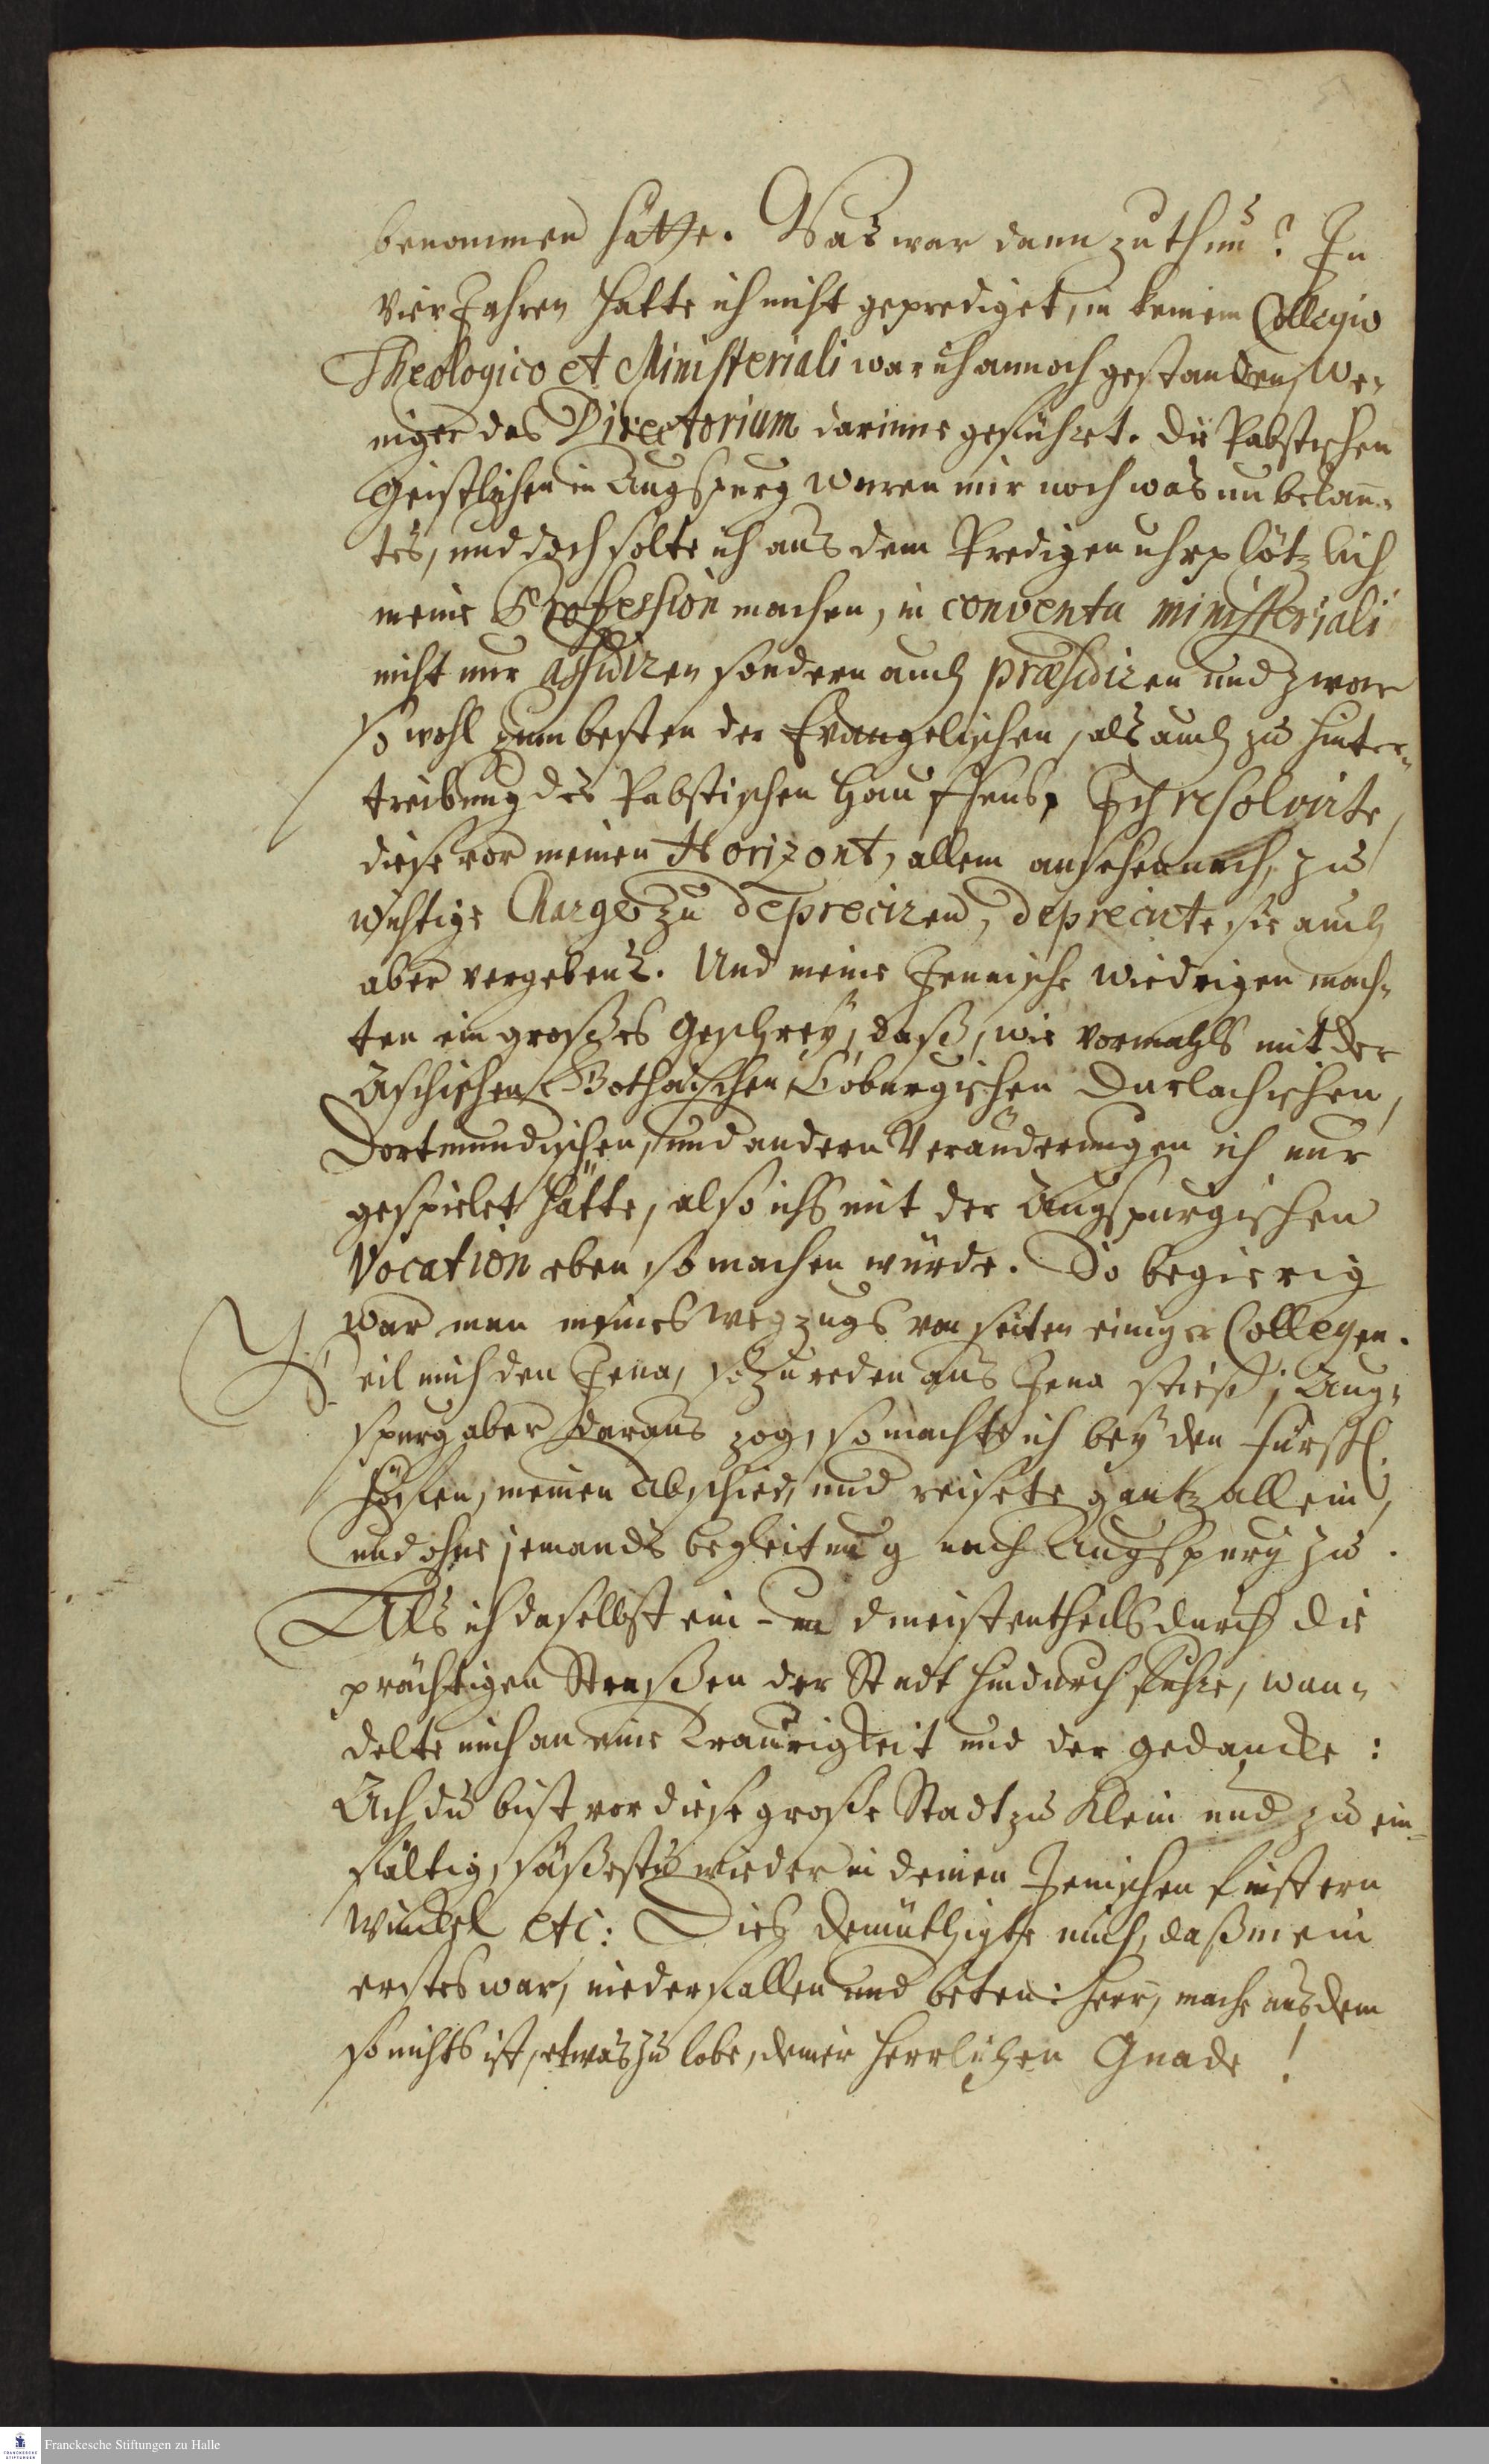 benommen hätte. Was war dann zu thun? In
vier Jahren hatte ich nicht geprediget, in keinem Collegio
Theologico et Ministeriali war ich annoch gestanden, we-
niger das Directorium darinne geführet. Die Pabstischen
Geistlichen in Augspurg waren mir noch was unbekan̅-
tes, und doch solte ich aus dem Predigen uhrplötzlich
meine Profession machen, in conventu ministeriali
nicht nur assidiren sondern auch præsidiren und zwar
so wohl zum besten der Evangelischen, als auch zu hinter-
treibung des Pabstischen Hauffens. Ich resolvirte,
diese vor meinen Horizont, allem ansehen nach, zu
wichtige Charge zu depreciren, deprecirte sie auch
aber vergebens. Und meine Jenaische Wiedrigen mach-
ten ein großes Geschrey, daß, wie vormahls mit der
Aschischen, Gothaischen, Coburgischen Durlachischen,
Dortmundischen, und andern Veränderungen ich nur
gespielet hätte, also ichs mit der Augspurgischen
Vocation eben so machen würde. So begierig
war man meines wegzugs von seiten einiger Collegen.
Weil mich den Jena, so zu reden aus Jena stieß, Aug-
spurg aber daraus zog, so machte ich bey den Fürstl.
Höfen, meinen Abschied, und reisete gantz allein,
und ohne jemands begleitung nach Augspurg zu.
Als ich daselbst ein- und meistentheils durch die
prächtigen Straßen der Stadt hindurch fuhr, wan-
delte mich an eine Traurigkeit und der gedancke:
Ach du bist vor diese große Stadt zu klein und zu ein-
fältig, säßestu wieder in deinen Jenischen finstern
Winckel etc: Dies demüthigte mich, daß mein
erstes war, niederfallen und beten: Herr, mache aus dem
so nichts ist, etwas zu lobe, deiner Herrlichen Gnade!
Franckesche Stiftungen zu Halle